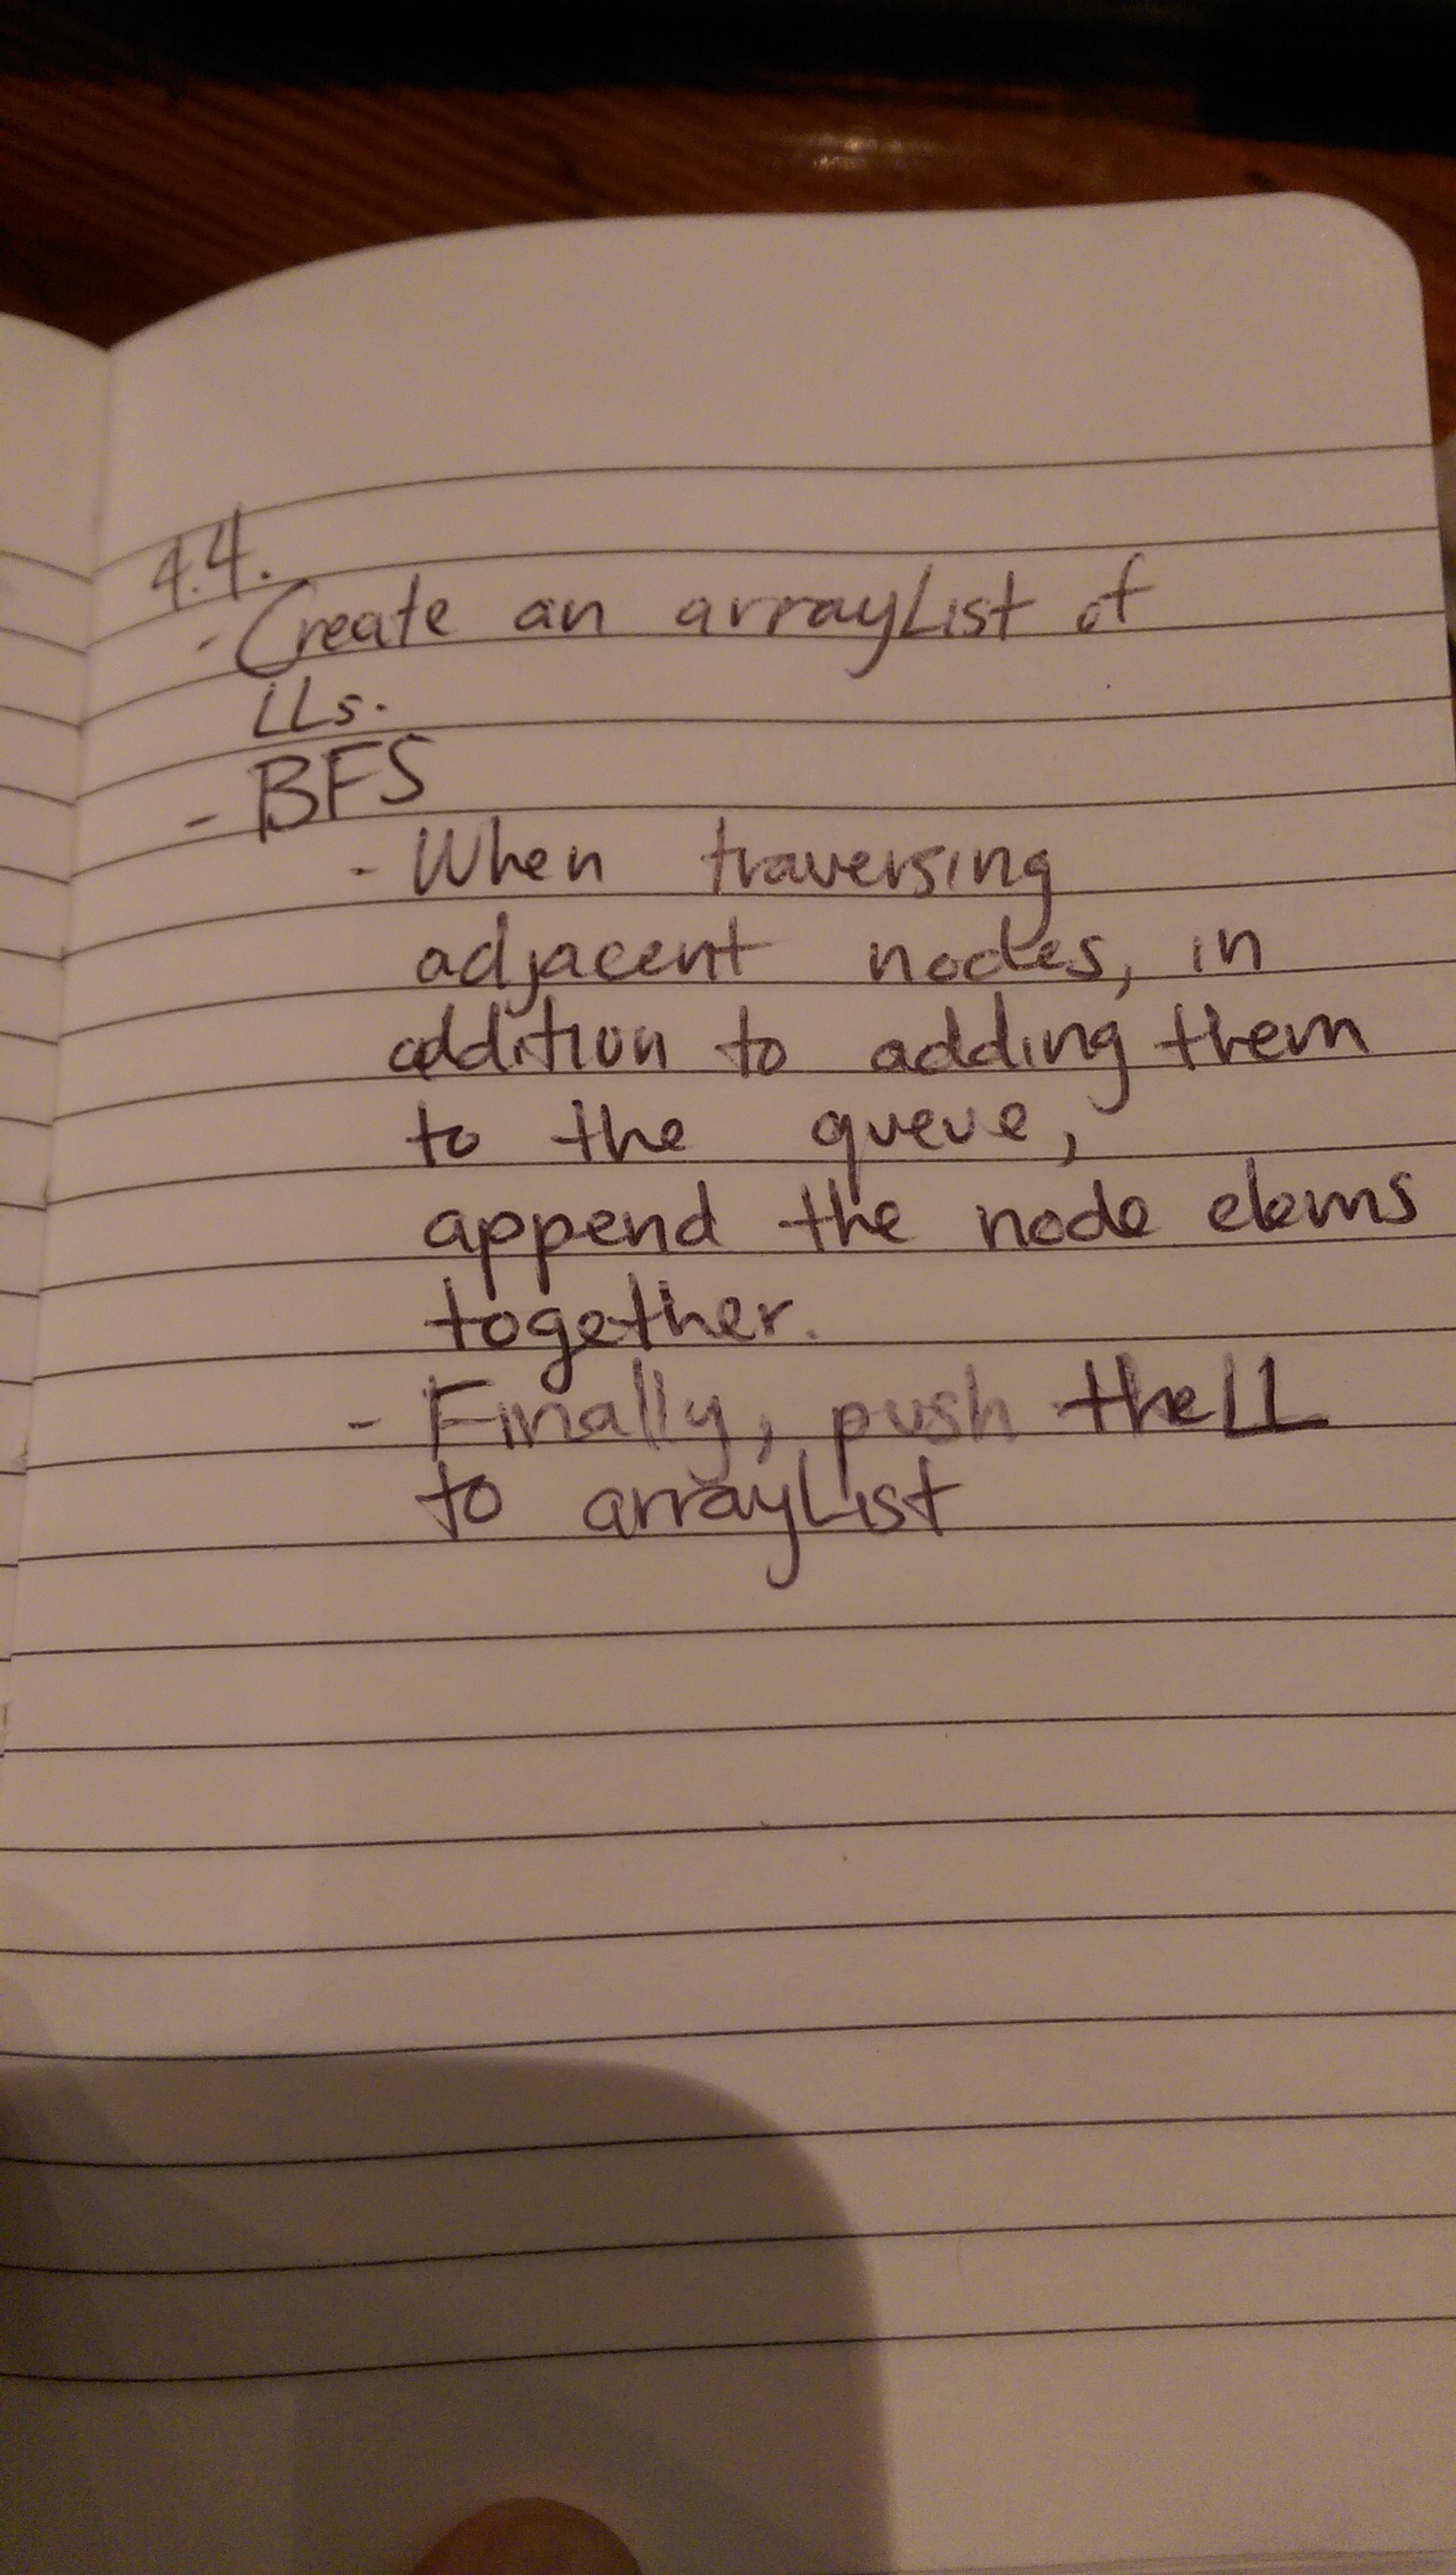 4.4.
- Create an arrayList of
LLs.
- BFS
- When traversing
adjacent nodes, in
addition to adding them
to the queue,
append the node elems
together.
- Finally, push the LL
to arrayList